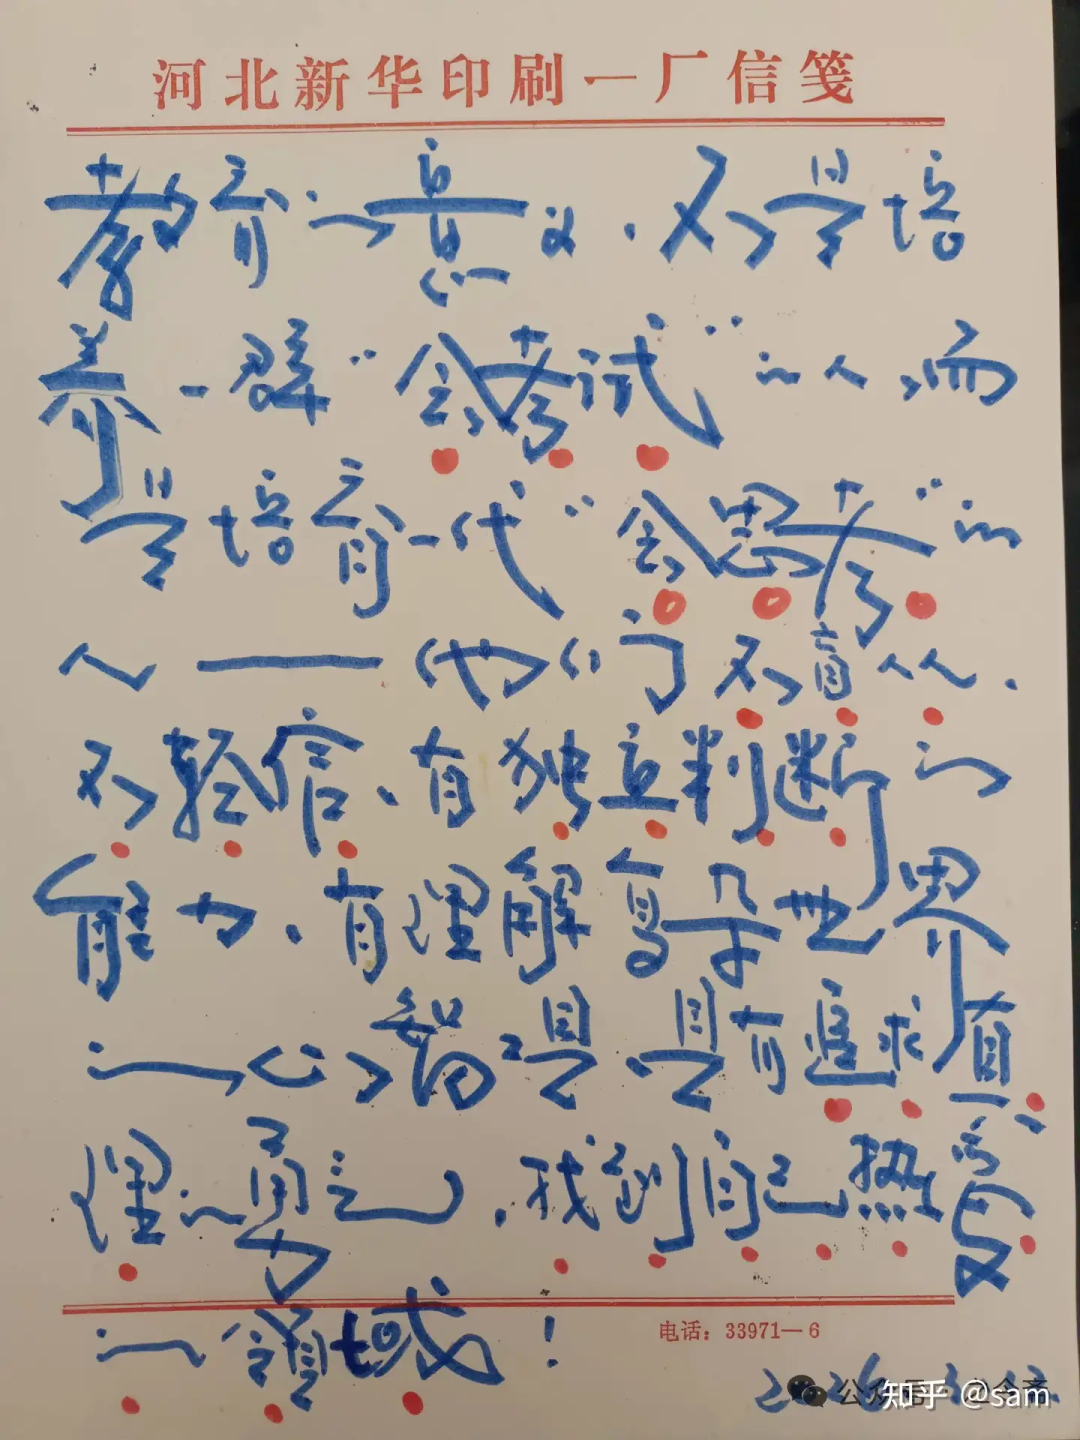 河北新华印刷一厂信笺
教育的意义,不是培
养一群“会考试”的人,而
是培育一代“会思考”的
人——他们不盲从、
不轻信、有独立判断的
能力、有理解复杂世界
的心智。更是具有追求真
理的勇气,找到自己热爱
的领域!
电话:33971—6
公众号
知乎 @sam